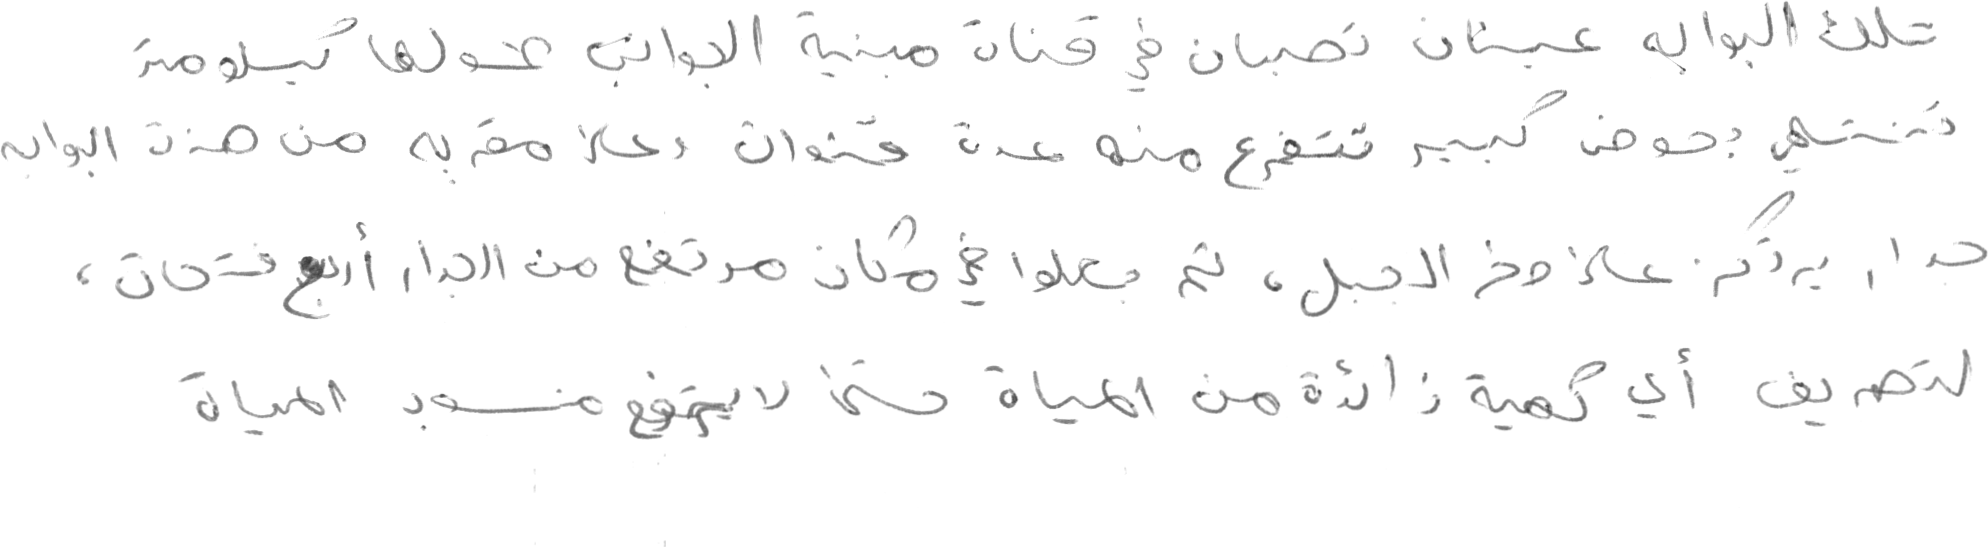 تلك البوابه عينان تصبان في قناة مبنية الجوانب طولها كيلومتر
تنتهي بحوض كبير تتفرع منه عدة قنوات وعلى مقربه من هذة البوابه
جدار يرتكز على صخر الجبل، ثم جعلوا في مكان مرتفع من الجدار أربع فتحات،
لتصريف أي كمية زائدة من المياة حتى لا يرتفع منسوب المياة